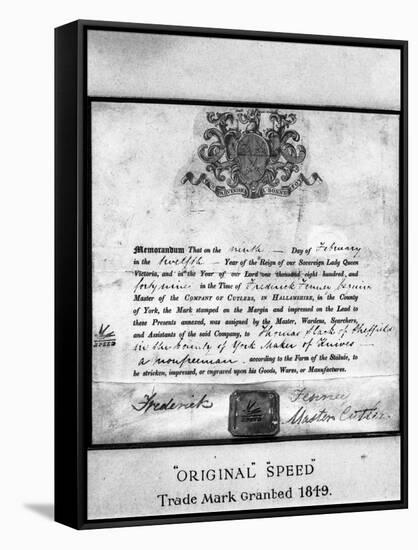 Memorandum That on the ninth Day of February
in the twelfth Year of the Reign of our Sovereign Lady Queen
Victoria, and in the Year of our Lord one thousand eight hundred, and
forty nine in the Time of Frederick Fenney Esquire
Master of the COMPANY OF CUTLERS, IN HALLAMSHIRE, in the County
of York, the Mark stamped on the Margin and impressed on the Lead to
these Presents annexed, was assigned by the Master, Wardens, Searchers,
and Assistants of the said Company, to Thomas Slack of Sheffield
in the County of York Maker of Knives
a nonfreeman according to the Form of the Statute, to
be stricken, impressed, or engraved upon his Goods, Wares, or Manufactures.
SPEED
Frederick Fenney
Master Cutler
SPEED
"ORIGINAL" "SPEED"
Trade Mark Granted 1849.